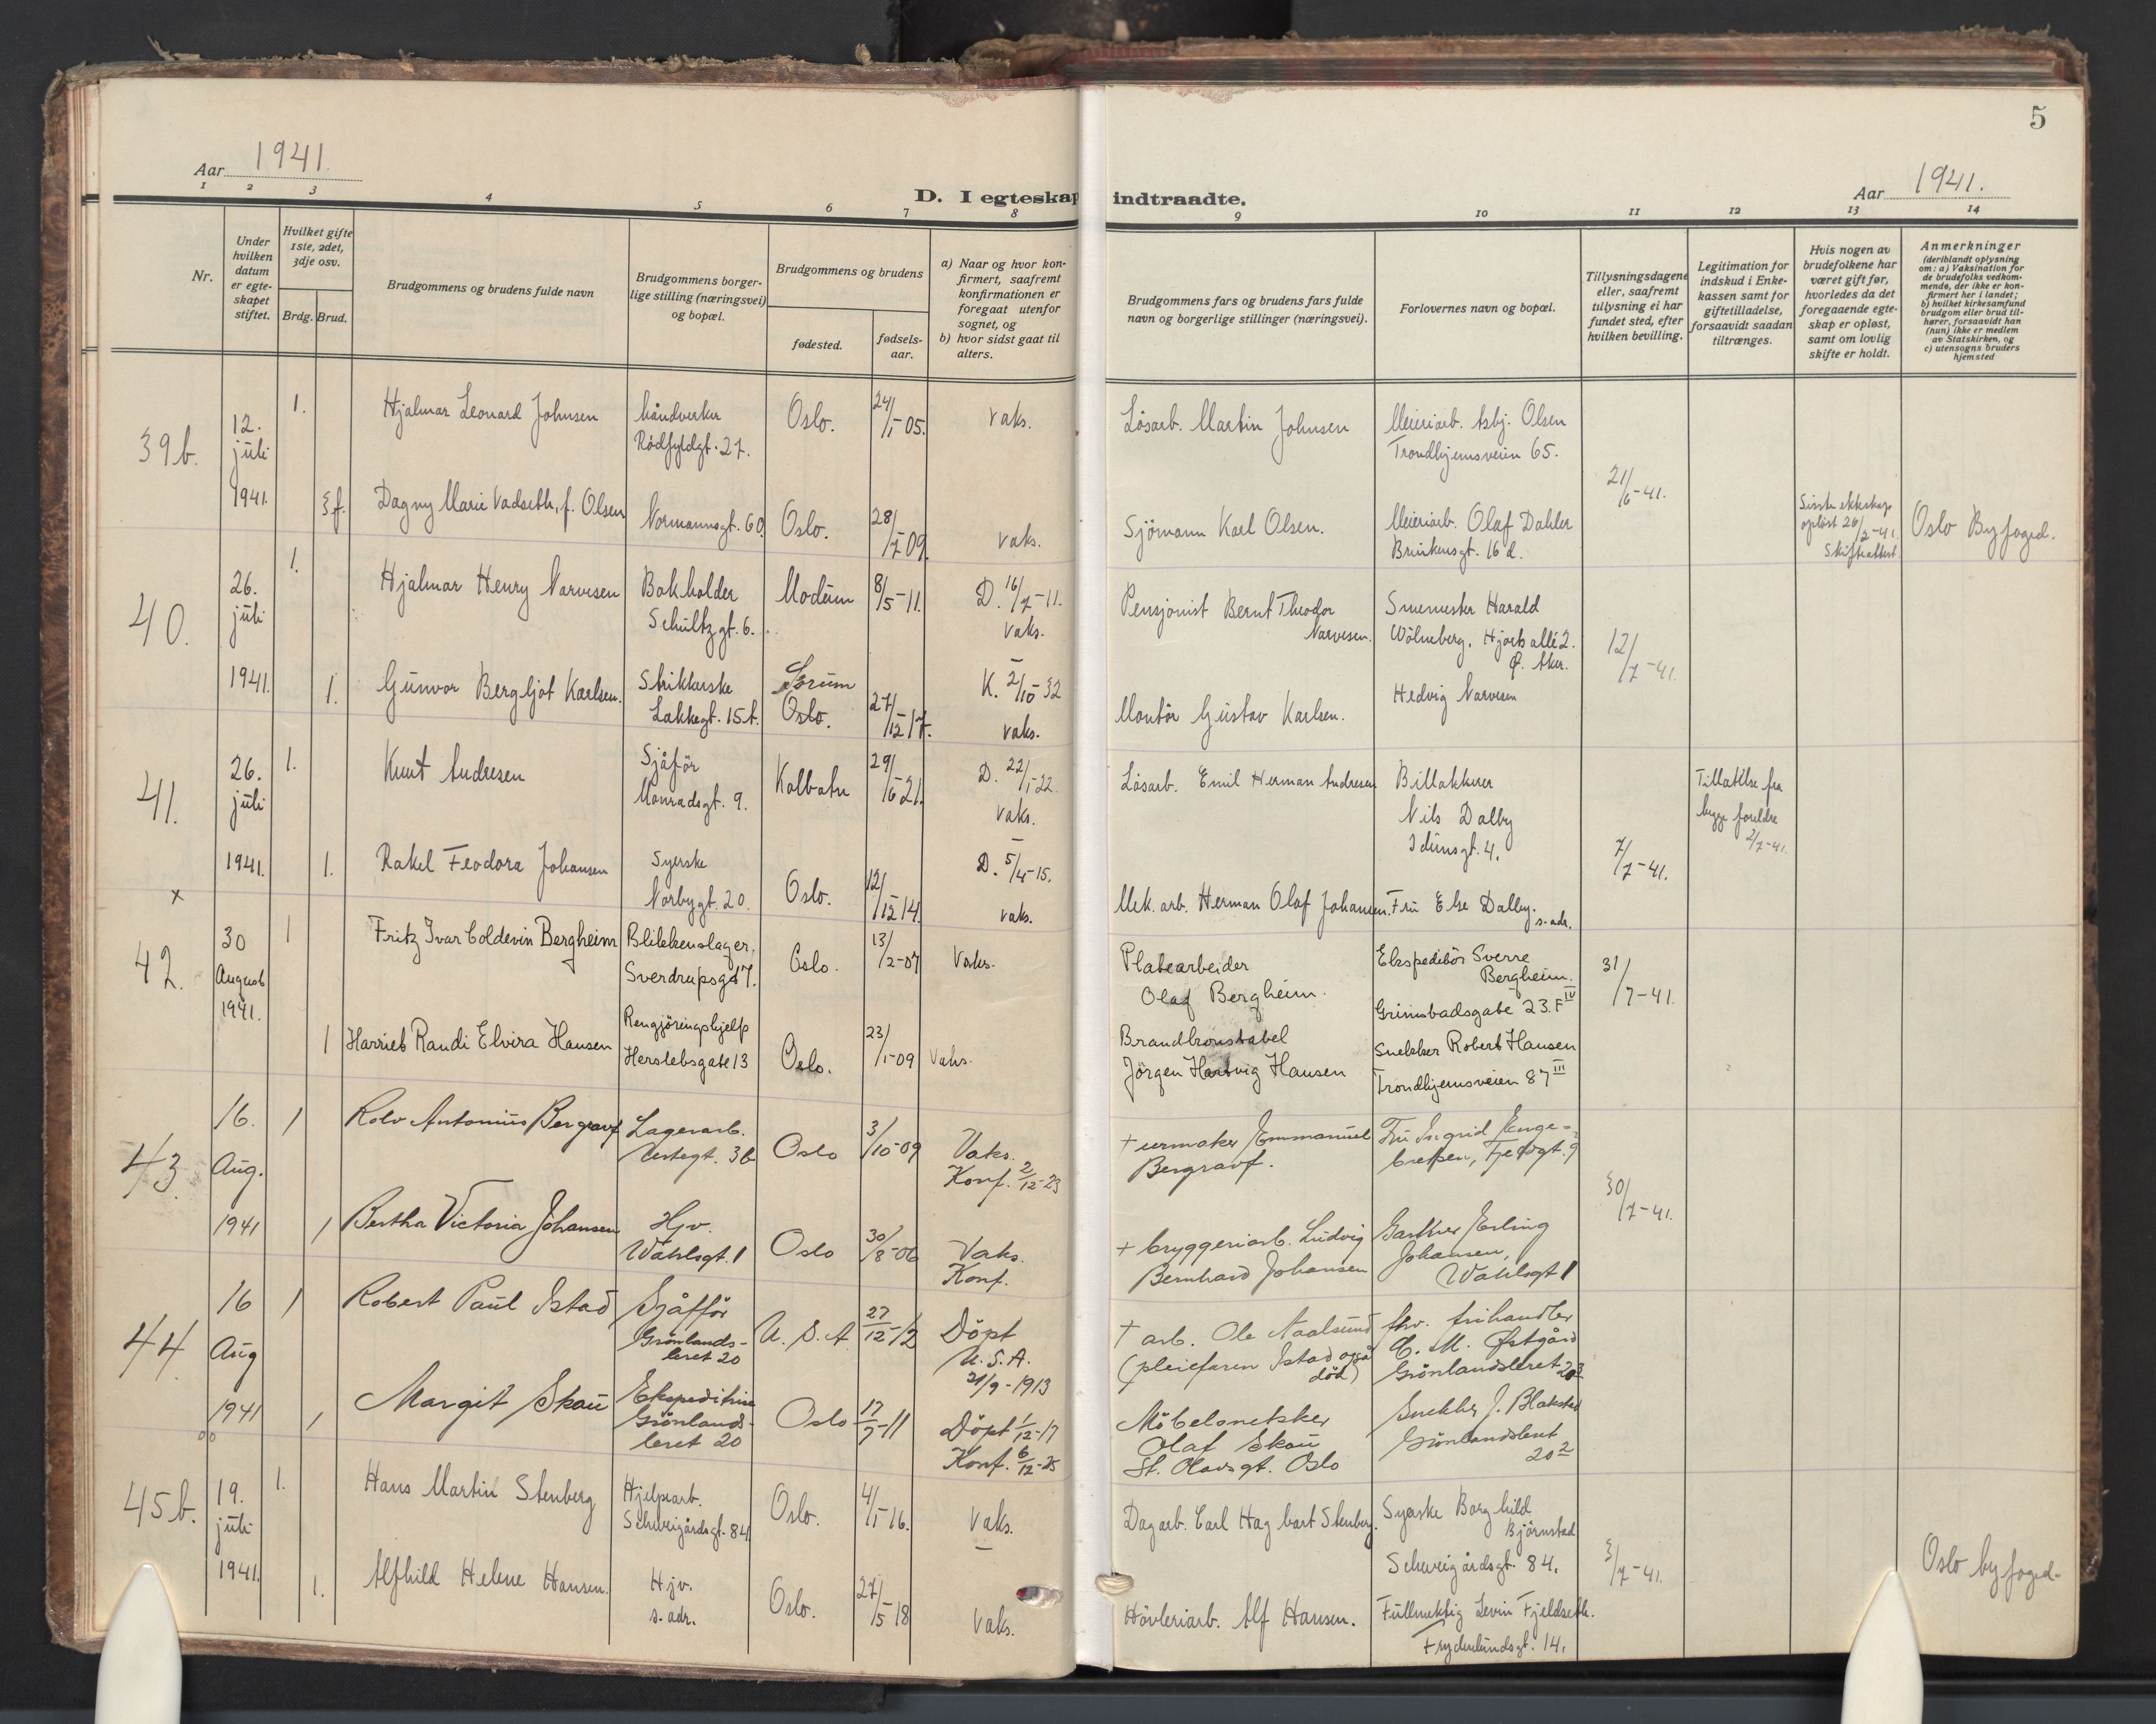 5
Aar 1941.
D. I egteskap indtraadte.
Aar 1941.
1 2 3 4 5 6 7 8 9 10 11 12 13 14
Nr.
Under hvilken datum er egte-skapet stiftet.
Hvilket gifte 1ste, 2det, 3dje osv.
Brdg. Brud.
Brudgommens og brudens fulde navn
Brudgommens borger-lige stilling (næringsvei) og bopæl.
Brudgommens og brudens
fødested.
fødsels-aar.
a) Naar og hvor kon-firmert, saafremt konfirmationen er foregaat utenfor sognet, og
b) hvor sidst gaat til alters.
Brudgommens fars og brudens fars fulde navn og borgerlige stillinger (næringsvei).
Forlovernes navn og bopæl.
Tillysningsdagene eller, saafremt tillysning ei har fundet sted, efter hvilken bevilling.
Legitimation for indskud i Enke-kassen samt for giftetilladelse, forsaavidt saadan tiltrænges.
Hvis nogen av brudefolkene har været gift før, hvorledes da det foregaaende egte-skap er opløst, samt om lovlig skifte er holdt.
Anmerkninger (deriblandt oplysning om: a) Vaksination for de brudefolks vedkom-mende, der ikke er kon-firmert her i landet; b) hvilket kirkesamfund brudgom eller brud til-hører, forsaavidt han (hun) ikke er medlem av Statskirken, og c) utensogns bruders hjemsted
39b. 12. juli 1941.
1. Hjalmar Leonard Johnsen
håndverker
Rödfyldgt. 27.
Oslo. 24/1-05. vaks.
Lösarb. Martin Johnsen
Meieriarb. Asbj. Olsen
Trondhjemsveien 65.
21/6-41.
3f. Dagny Marie Vadseth, f. Olsen
Normannsgt. 60. Oslo. 28/7-09. vaks.
Sjömann Karl Olsen.
Meieriarb. Olaf Dahler
Brinkensgt. 16 d.
Siste ekteskap
oplöst 26/2-41.
Skifteattest
Oslo Byfoged.
40. 26. juli 1941.
1. Hjalmar Henry Narvesen
Bokholder
Schultzgt. 6.
Modum 8/5-11. D. 16/7-11.
vaks.
Pensjonist Bernt Theodor
Narvesen.
Smemester Harald
Wölneberg, Hjorts allé 2.
Ø. Aker.
12/7-41.
1. Gunvor Bergljot Karlsen.
Strikkerske
Lakkegt. 15 b.
Sørum
Oslo. 27/12 17. K. 2/10-32
vaks.
Montör Gustav Karlsen.
Hedvig Narvesen
41. 26. juli 1941.
1. Knut Andresen
Sjåför
Monradsgt. 9.
Kolbotn 29/6-21. D. 22/1-22.
vaks.
Lösarb. Emil Herman Andresen
Billakkerer
Nils Dalby
Idunsgt. 4.
7/7-41.
Tillatelse fra
begge foreldre
2/7-41.
1. Rakel Feodora Johansen
Syerske
Norbygt. 20.
Oslo. 12/12 14. D. 5/4-15.
vaks.
Mek. arb. Herman Olaf Johansen.
Fru Else Dalby.
s. adr.
x
42. 30 August 1941.
1 Fritz Ivar Coldevin Bergheim
Blikkenslager,
Sverdrupsgt 7.
Oslo. 13/2-07 Vaks.
Platearbeider
Olaf Bergheim.
Ekspeditör Sverre
Bergheim.
Grimstadsgate 23. F IV
31/7-41.
1 Harriet Randi Elvira Hansen
Rengjöringshjelp
Herslebsgate 13
Oslo. 23/1-09 Vaks.
Brandkonstabel
Jörgen Hartvig Hansen
Snekker Robert Hansen
Trondhjemsveien 87 III
43. 16. Aug. 1941
1 Rolv Antonius Bergravf
Lagerarb.
Urtegt. 3b
Oslo 3/10-09 Vaks.
Konf. 2/12-23
+ urmaker Emmanuel
Bergravf.
Fru Ingrid Enge-
bretsen, Tjelogt. 9
30/7-41.
1 Bertha Victoria Johansen
Hjv.
Wahlsgt. 1
Oslo 30/8-06 Vaks.
Konf.
+ bryggeriarb. Ludvig
Bernhard Johansen
Gartner Erling
Johansen,
Wahlsgt 1
44. 16 Aug 1941
1 Robert Paul Istad
Sjåfför
Grönlands-
leret 20
U. S. A. 27/12-12 Döpt
U. S. A.
21/9-1913
+ arb. Ole Naalsund
(pleiefaren Istad også
död)
fhv. trihandler
C. M. Østgård
Grönlandsleret 20 3
1 Margit Skau
Ekspeditrise
Grönlands-
leret 20
Oslo 17/7-11 Döpt 1/12-17
Konf. 6/12-25
Möbelsnekker
Olaf Skau
St. Olavsgt. Oslo
Snekker J. Blakstad
Grönlandsleret
20 2
45b. 19. juli 1941.
1. Hans Martin Stenberg
Hjelpearb.
Schweigårdsgt. 84
Oslo. 4/1-16. vaks.
Dagarb. Carl Hagbart Stenberg.
Syerske Borghild
Björnstad
Schweigårdsgt. 84.
3/7-41.
Oslo byfoged-
1. Alfhild Helene Hansen.
Hjv.
s. adr.
Oslo. 27/5-18 vaks.
Hövleriarb. Alf Hansen.
Fullmektig Levin Fjeldseth.
Frydenlundsgt. 14.